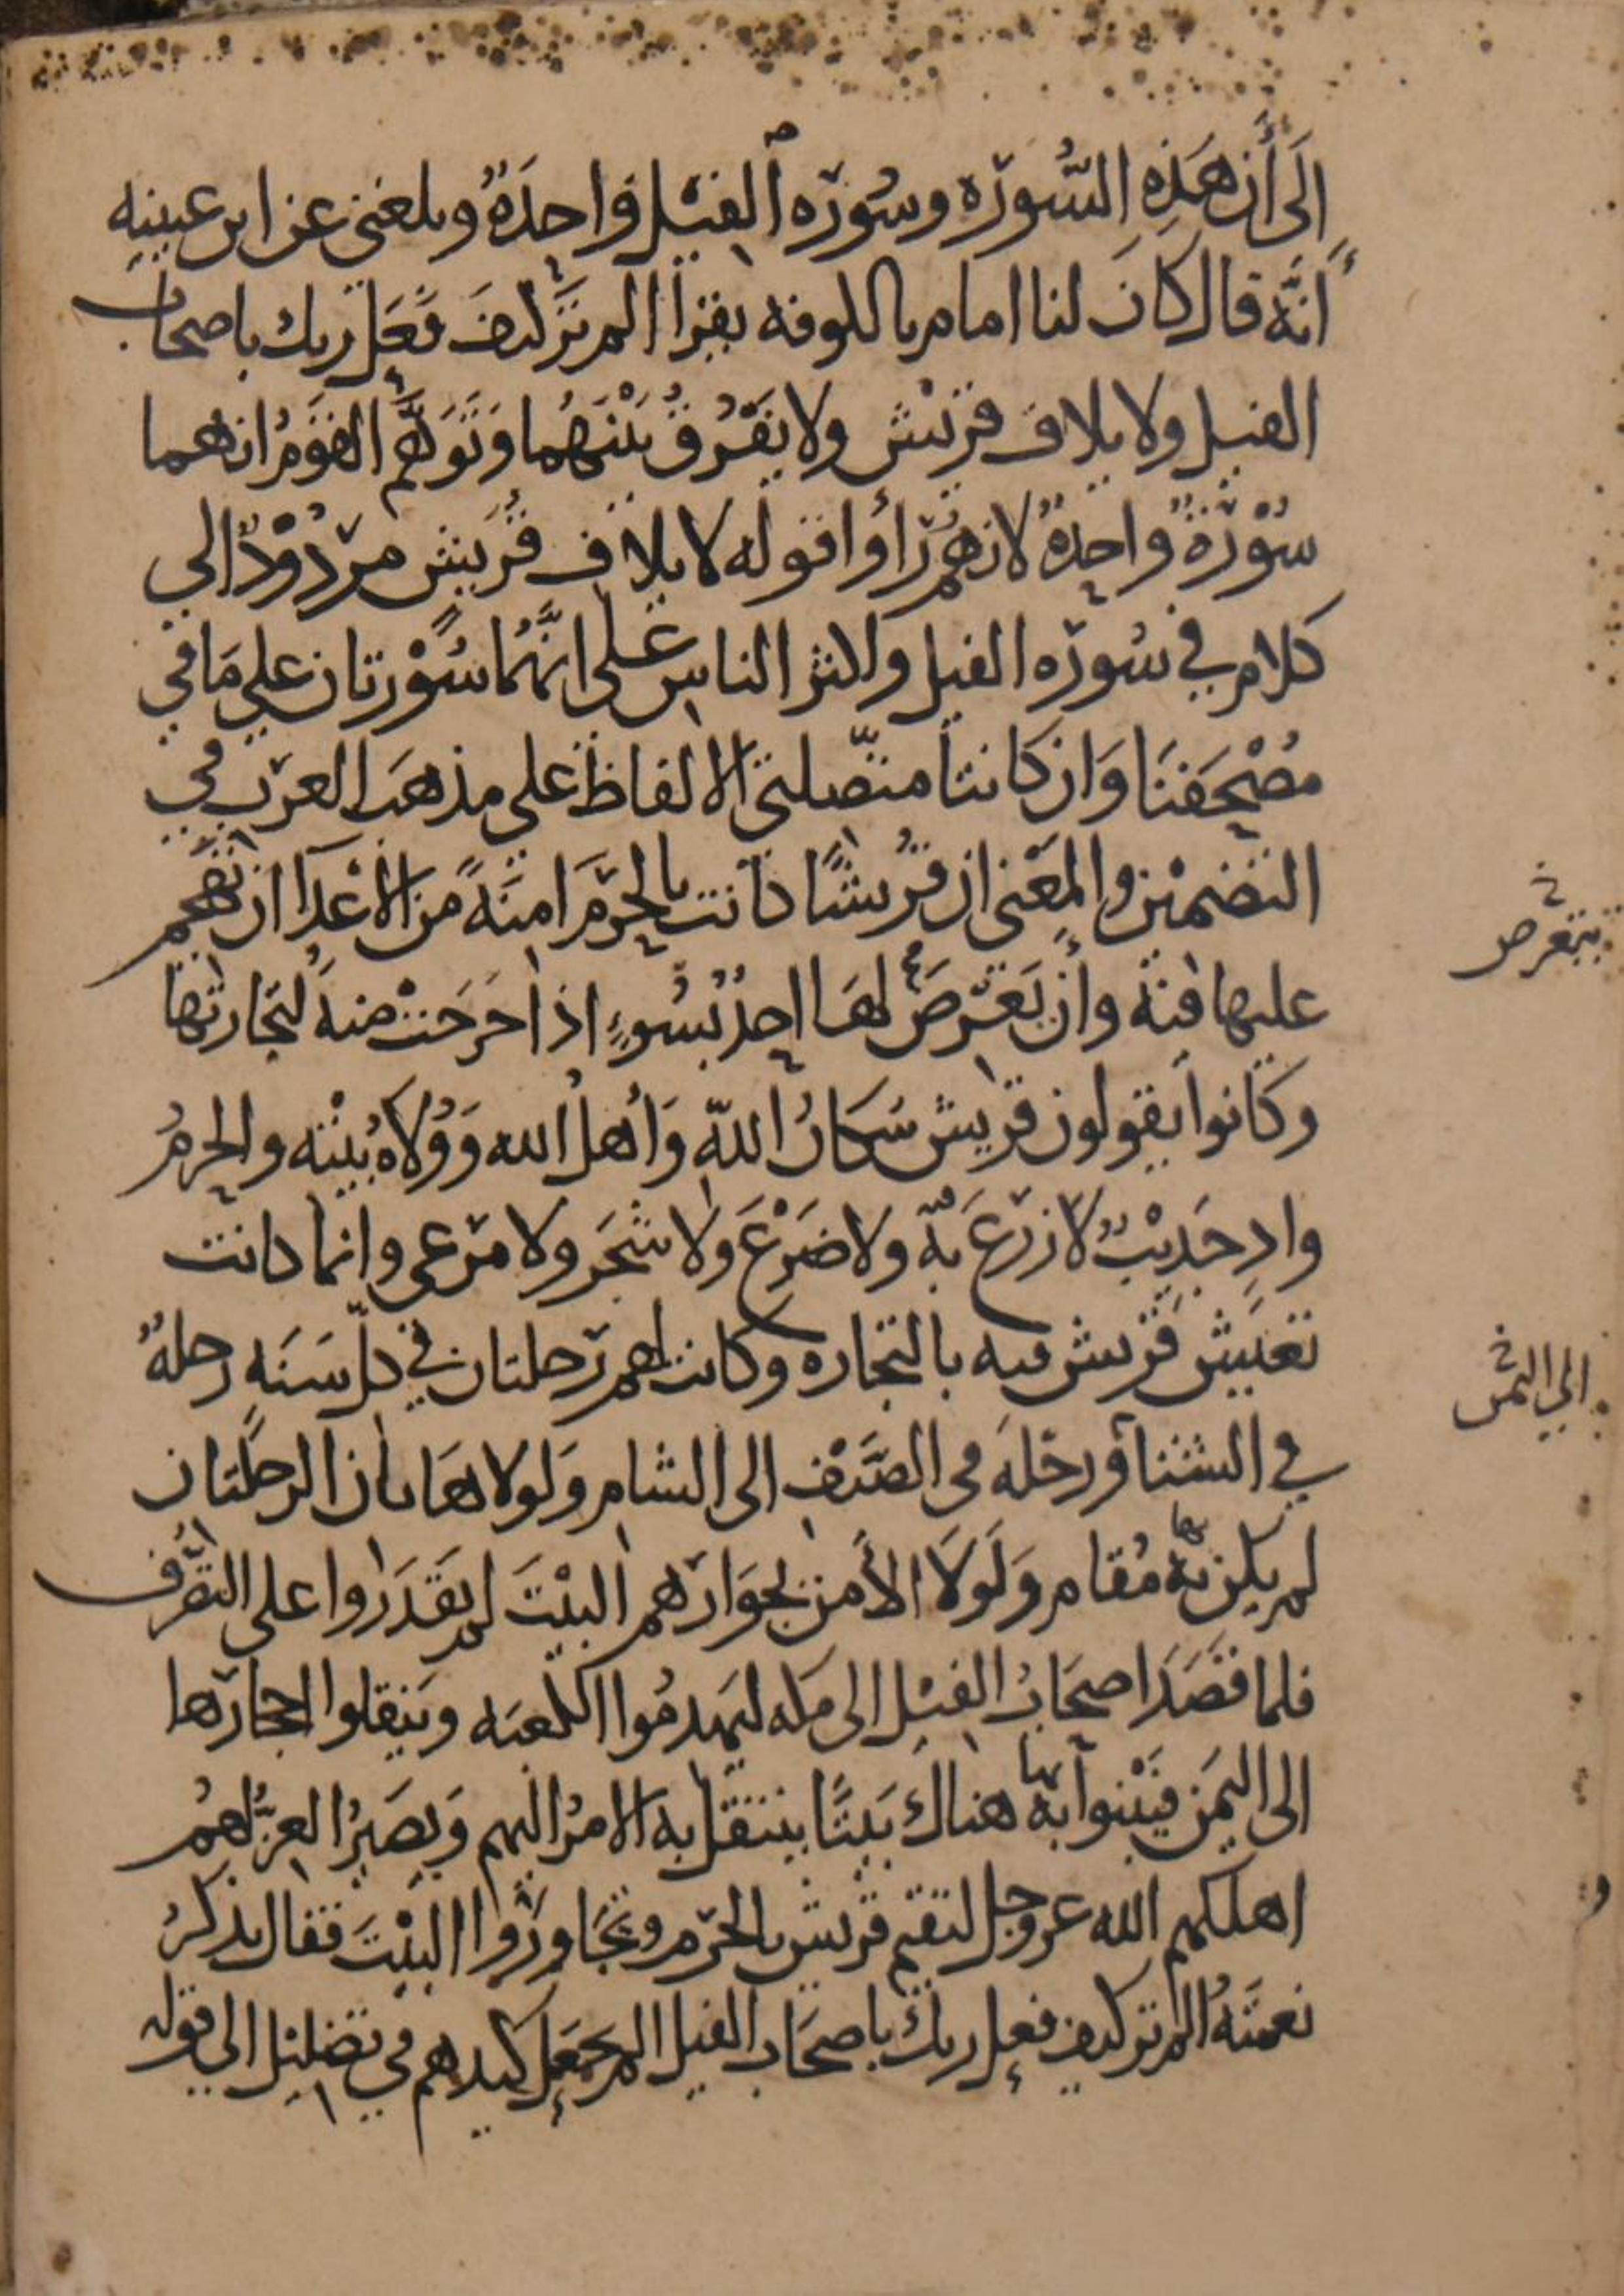 إلَى أَنَّ هَذِهِ السُّورَه وسُورَه الفيْل وَاحدَةٌ وبلغنى عن ابن عيينه
أنَّه قال كانَ لنا امام بالكوفه يقرأ الم تَرَ كيفَ فَعَل ربك باصحاب
الفيل ولايلاف قريْش ولا يفَرُقُ بَيْنَهُما وَتَوَهَّم القَوْمُ انهما
سُوْرَةٌ واحِدةٌ لانهُم رَأوا قوله لايلاف قُرَيش مردُوْدٌ الى
كلام في سُورَه الفيل واكثر الناس على انَّهُما سُوْرتان على مَا في
مُصْحَفنَا وَان كانتا متّصلتي الالفاظ على مذهَب العَرَب في
التضمين والمَعْنى ان قُريشًا كانت بالحَرَم امنَةً من الاعْدَا ان تهجم
عليها فيه وأَن يَعْرضَ لهَا احدٌ بسُوءٍ اذا خرَجَتْ منهُ لتجارتها
وكانوا يقولون قريش سُكانُ اللّه وَأهلُ الله وَوُلاهُ بيْته والحرمُ
وادٍ جَدِيْبٌ لا زرَعَ بهِ ولا ضَرْعَ ولا شَجَر ولا مَرْعى وانما كانت
تعيش قريش فيه بالتجاره وكانت لهم رَحلتان في كلّ سَنَهٍ رحلهٌ
في الشتاءِ ورحلَه فى الصَّيْف الى الشام وَلولا هَاتان الرحلتان
لم يكن بهِ مُقام وَلَولَا الأَمن بجوَارهم البيْتَ لم يَقدَرُوا على التصَرُّف
فلما قصَدَ اصحَابُ الفيْل الى مكه ليهدمُوا الكعبَه وَينقلوا احجارَها
الى اليَمَن فيَبْنوا بها هناك بَيْتًا ينتقل به الامرُ اليهم وَيصيرُ العزُّ لهُم
اهلكهم الله عز وجل لتقيم قريش بالحرَم وتُجَاورُوا البيْتَ فقال يذكرُ
نعمَتَهُ الم تر كيف فعل ربك باصحَاب الفيل الم يجعَل كيدهم في تضليْل الى قوله
يتعرض
الى اليمن